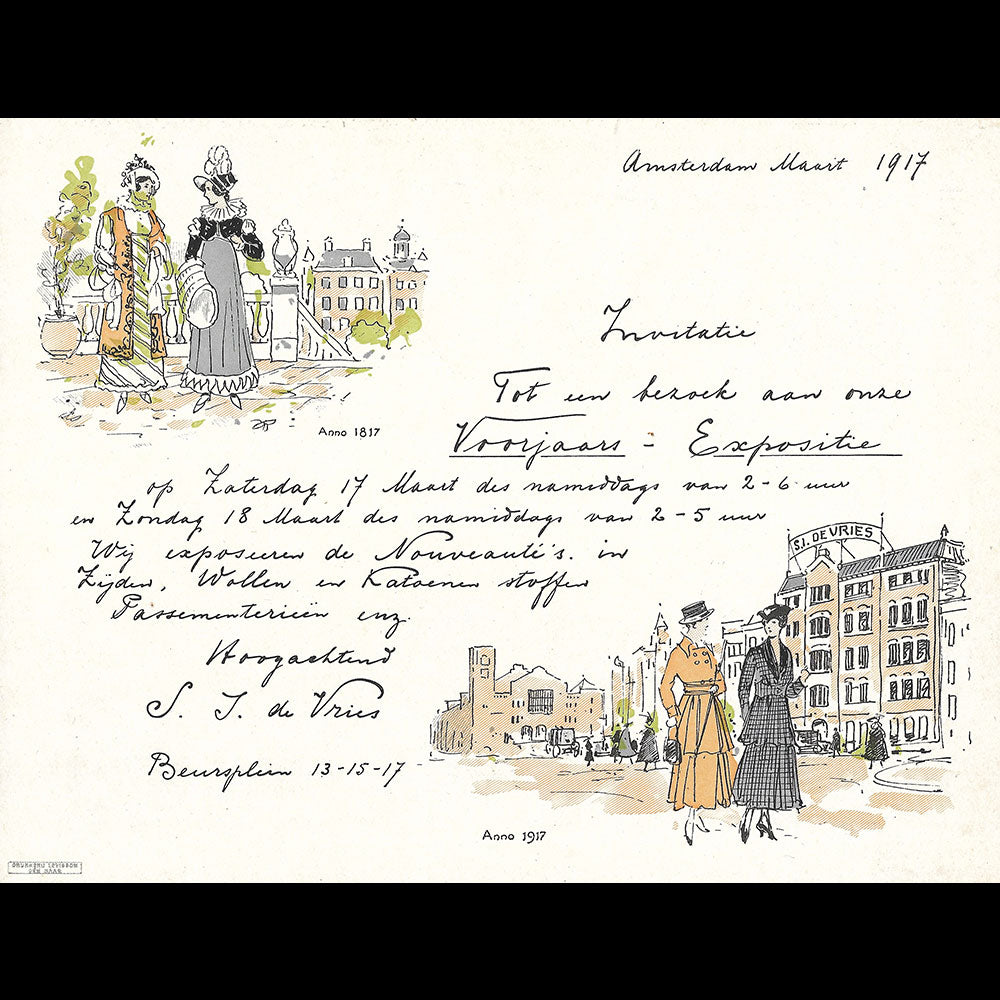 Amsterdam Maart 1917
Invitatie
Tot een bezoek aan onze
Voorjaars - Expositie
op Zaterdag 17 Maart des namiddags van 2-6 uur
en Zondag 18 Maart des namiddags van 2-5 uur
Wij exposeeren de Nouveauté's. in
Zijden, Wollen en Katoenen stoffen
Passementerieën enz.
Hoogachtend
S. I. de Vries
Beursplein 13-15-17
Anno 1817
S.I. DE VRIES
Anno 1917
DRUKKERIJ LEVISSON
DEN HAAG